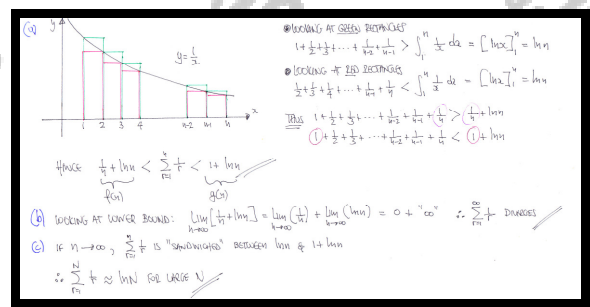 (a)
y
y = 1/x
1 2 3 4 n-2 n-1 n x
● LOOKING AT GREEN RECTANGLES
1 + 1/2 + 1/3 + ... + 1/(n-2) + 1/(n-1) > ∫₁ⁿ 1/x dx = [lnx]₁ⁿ = ln n
● LOOKING AT RED RECTANGLES
1/2 + 1/3 + 1/4 + ... + 1/(n-1) + 1/n < ∫₁ⁿ 1/x dx = [lnx]₁ⁿ = ln n
THUS 1 + 1/2 + 1/3 + ... + 1/(n-2) + 1/(n-1) + 1/n > 1/n + ln n
1 + 1/2 + 1/3 + ... + 1/(n-2) + 1/(n-1) + 1/n < 1 + ln n
HENCE 1/n + ln n < Σ_{r=1}^{n} 1/r < 1 + ln n
f(n) g(n)
(b) LOOKING AT LOWER BOUND: Lim_{n→∞} [1/n + ln n] = Lim_{n→∞} (1/n) + Lim_{n→∞} (ln n) = 0 + "∞" ∴ Σ_{r=1}^{∞} 1/r DIVERGES
(c) IF n → ∞, Σ_{r=1}^{n} 1/r IS "SANDWICHED" BETWEEN ln n & 1 + ln n
∴ Σ_{r=1}^{N} 1/r ≈ ln N FOR LARGE N